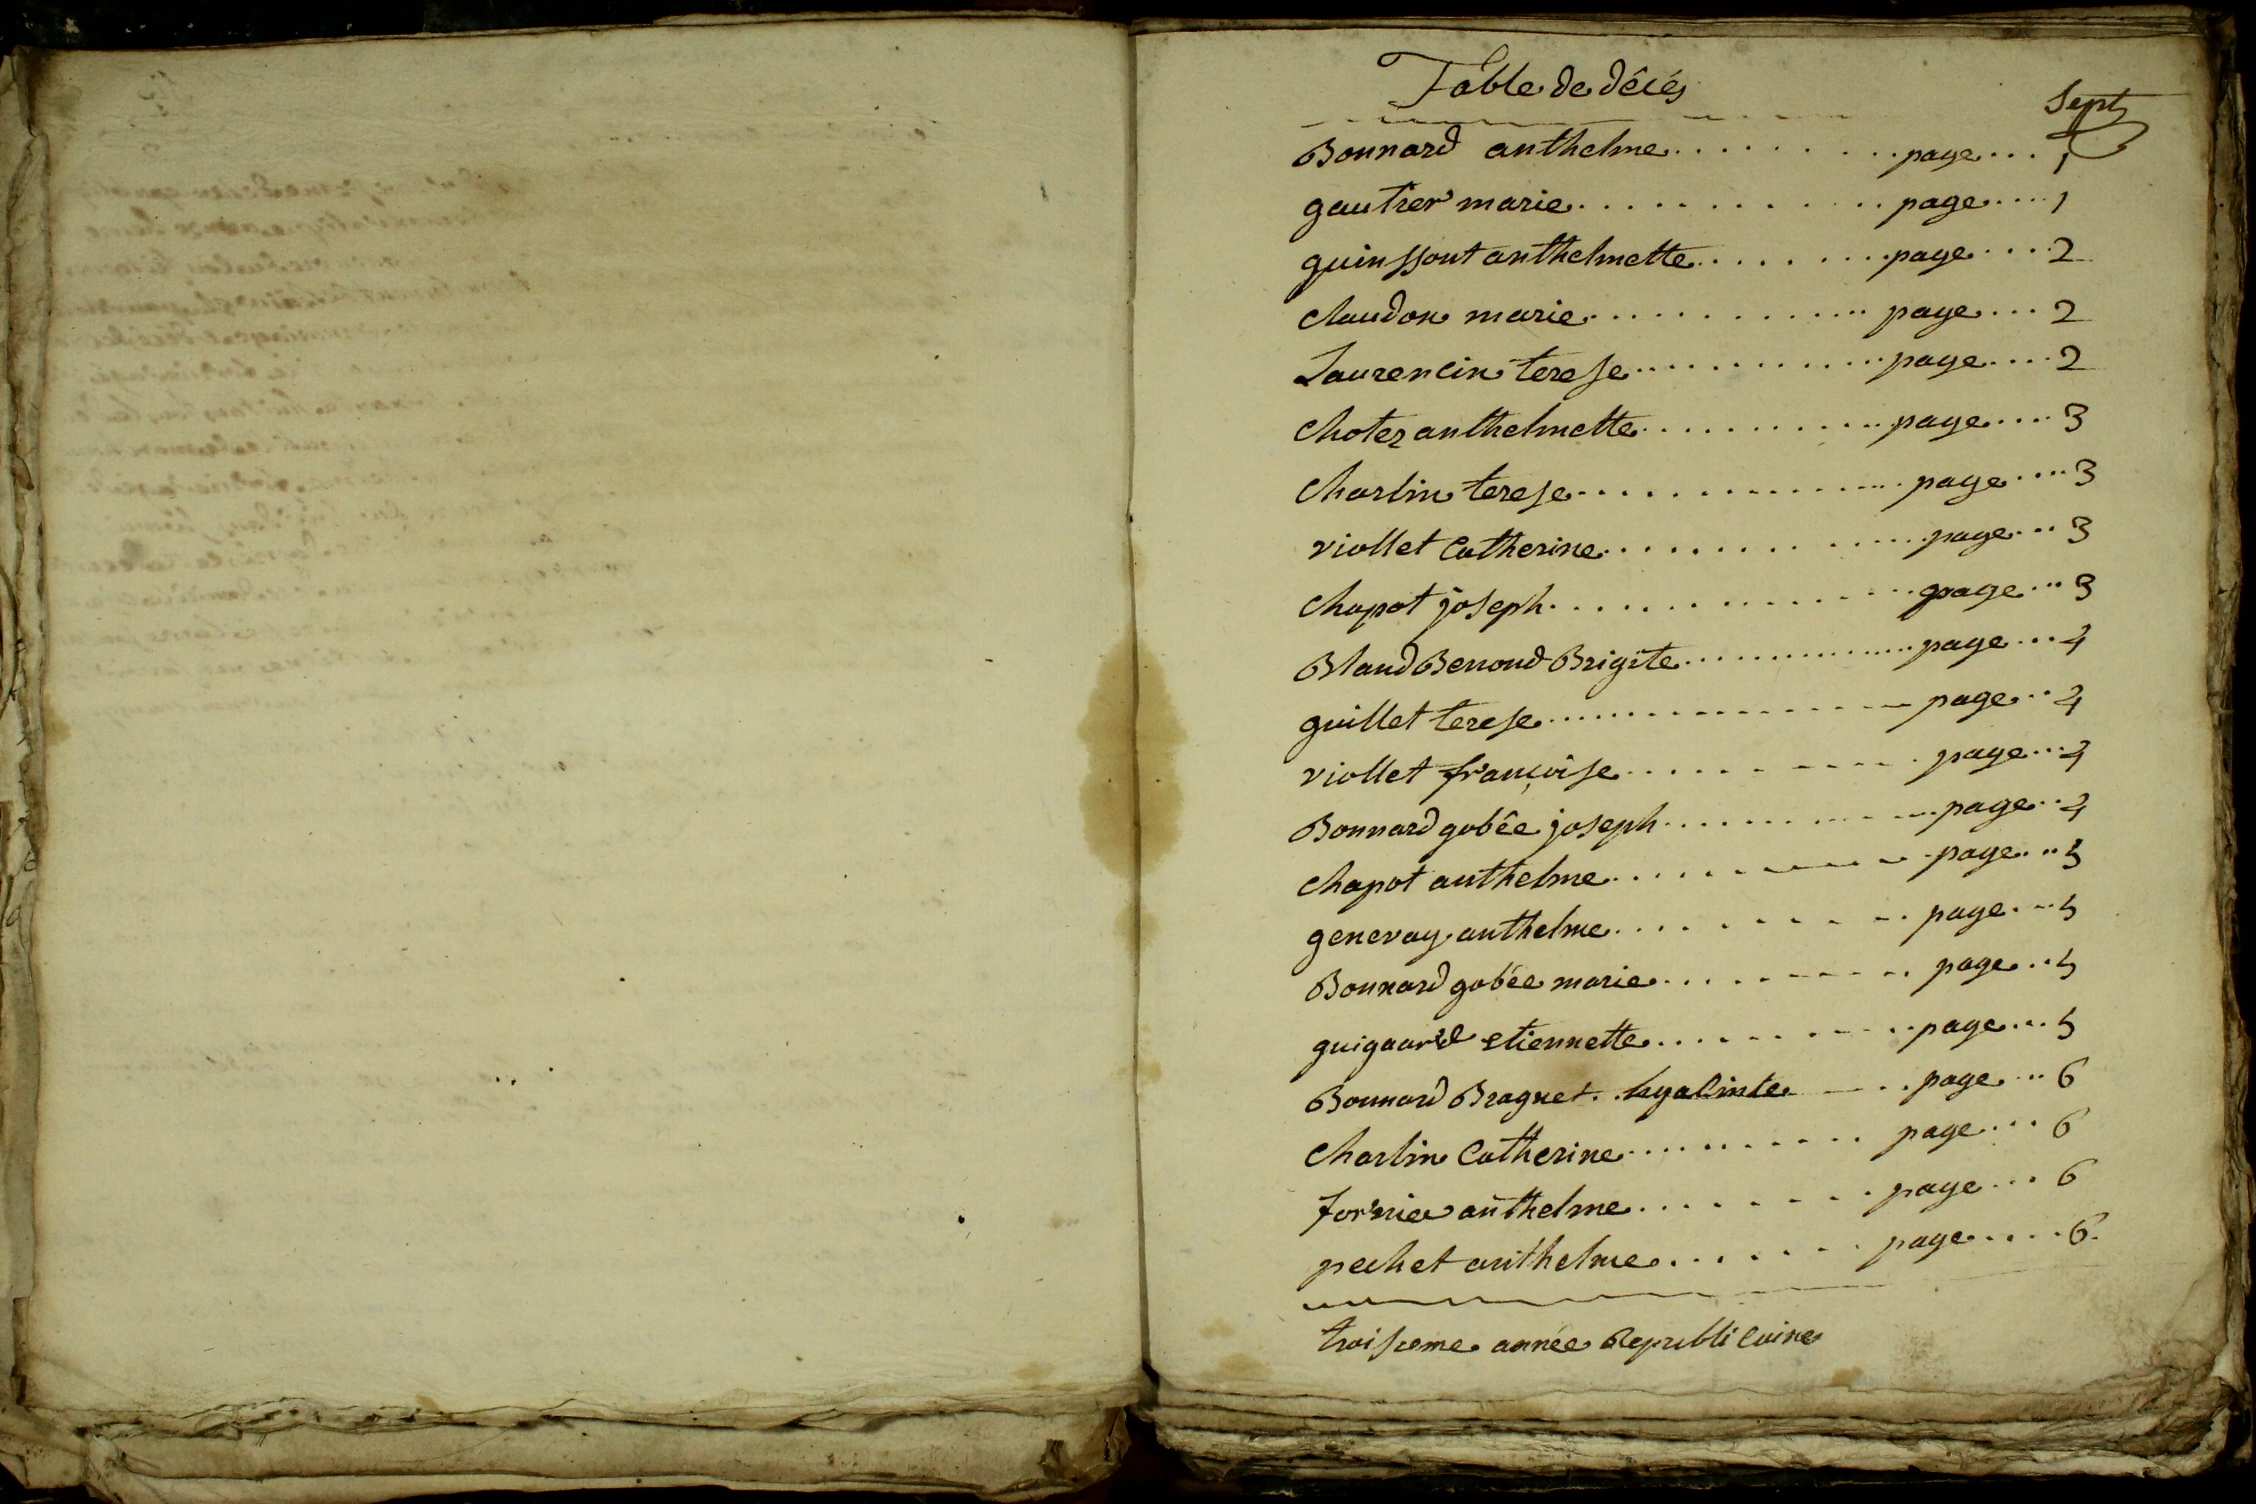 Table de décés
Sept
Bonnard anthelme......... page... 1
gautier marie............ page.... 1
guinssont anthelmette........ page.... 2
claudon marie............. page... 2
Laurencin terese............ page.... 2
Chotez anthelmette............ page.... 3
Charlin terese............... page.... 3
viollet Catherine............. page... 3
Chapot joseph................ page... 3
Bland Benoud Brigite............... page... 4
guillet terese................ page... 4
viollet françoise.......... page... 4
Bonnard gobée joseph............ page... 4
Chapot anthelme.......... page... 5
genevay anthelme......... page... 5
Bonnard gobée marie.......... page... 5
guigaard etiennette.......... page... 5
Bonnard Bragnet.. hyacinte ... page... 6
Charlin Catherine.......... page.... 6
fornier anthelme........ page... 6
pechet anthelme....... page..... 6.
troisieme année Republicaine